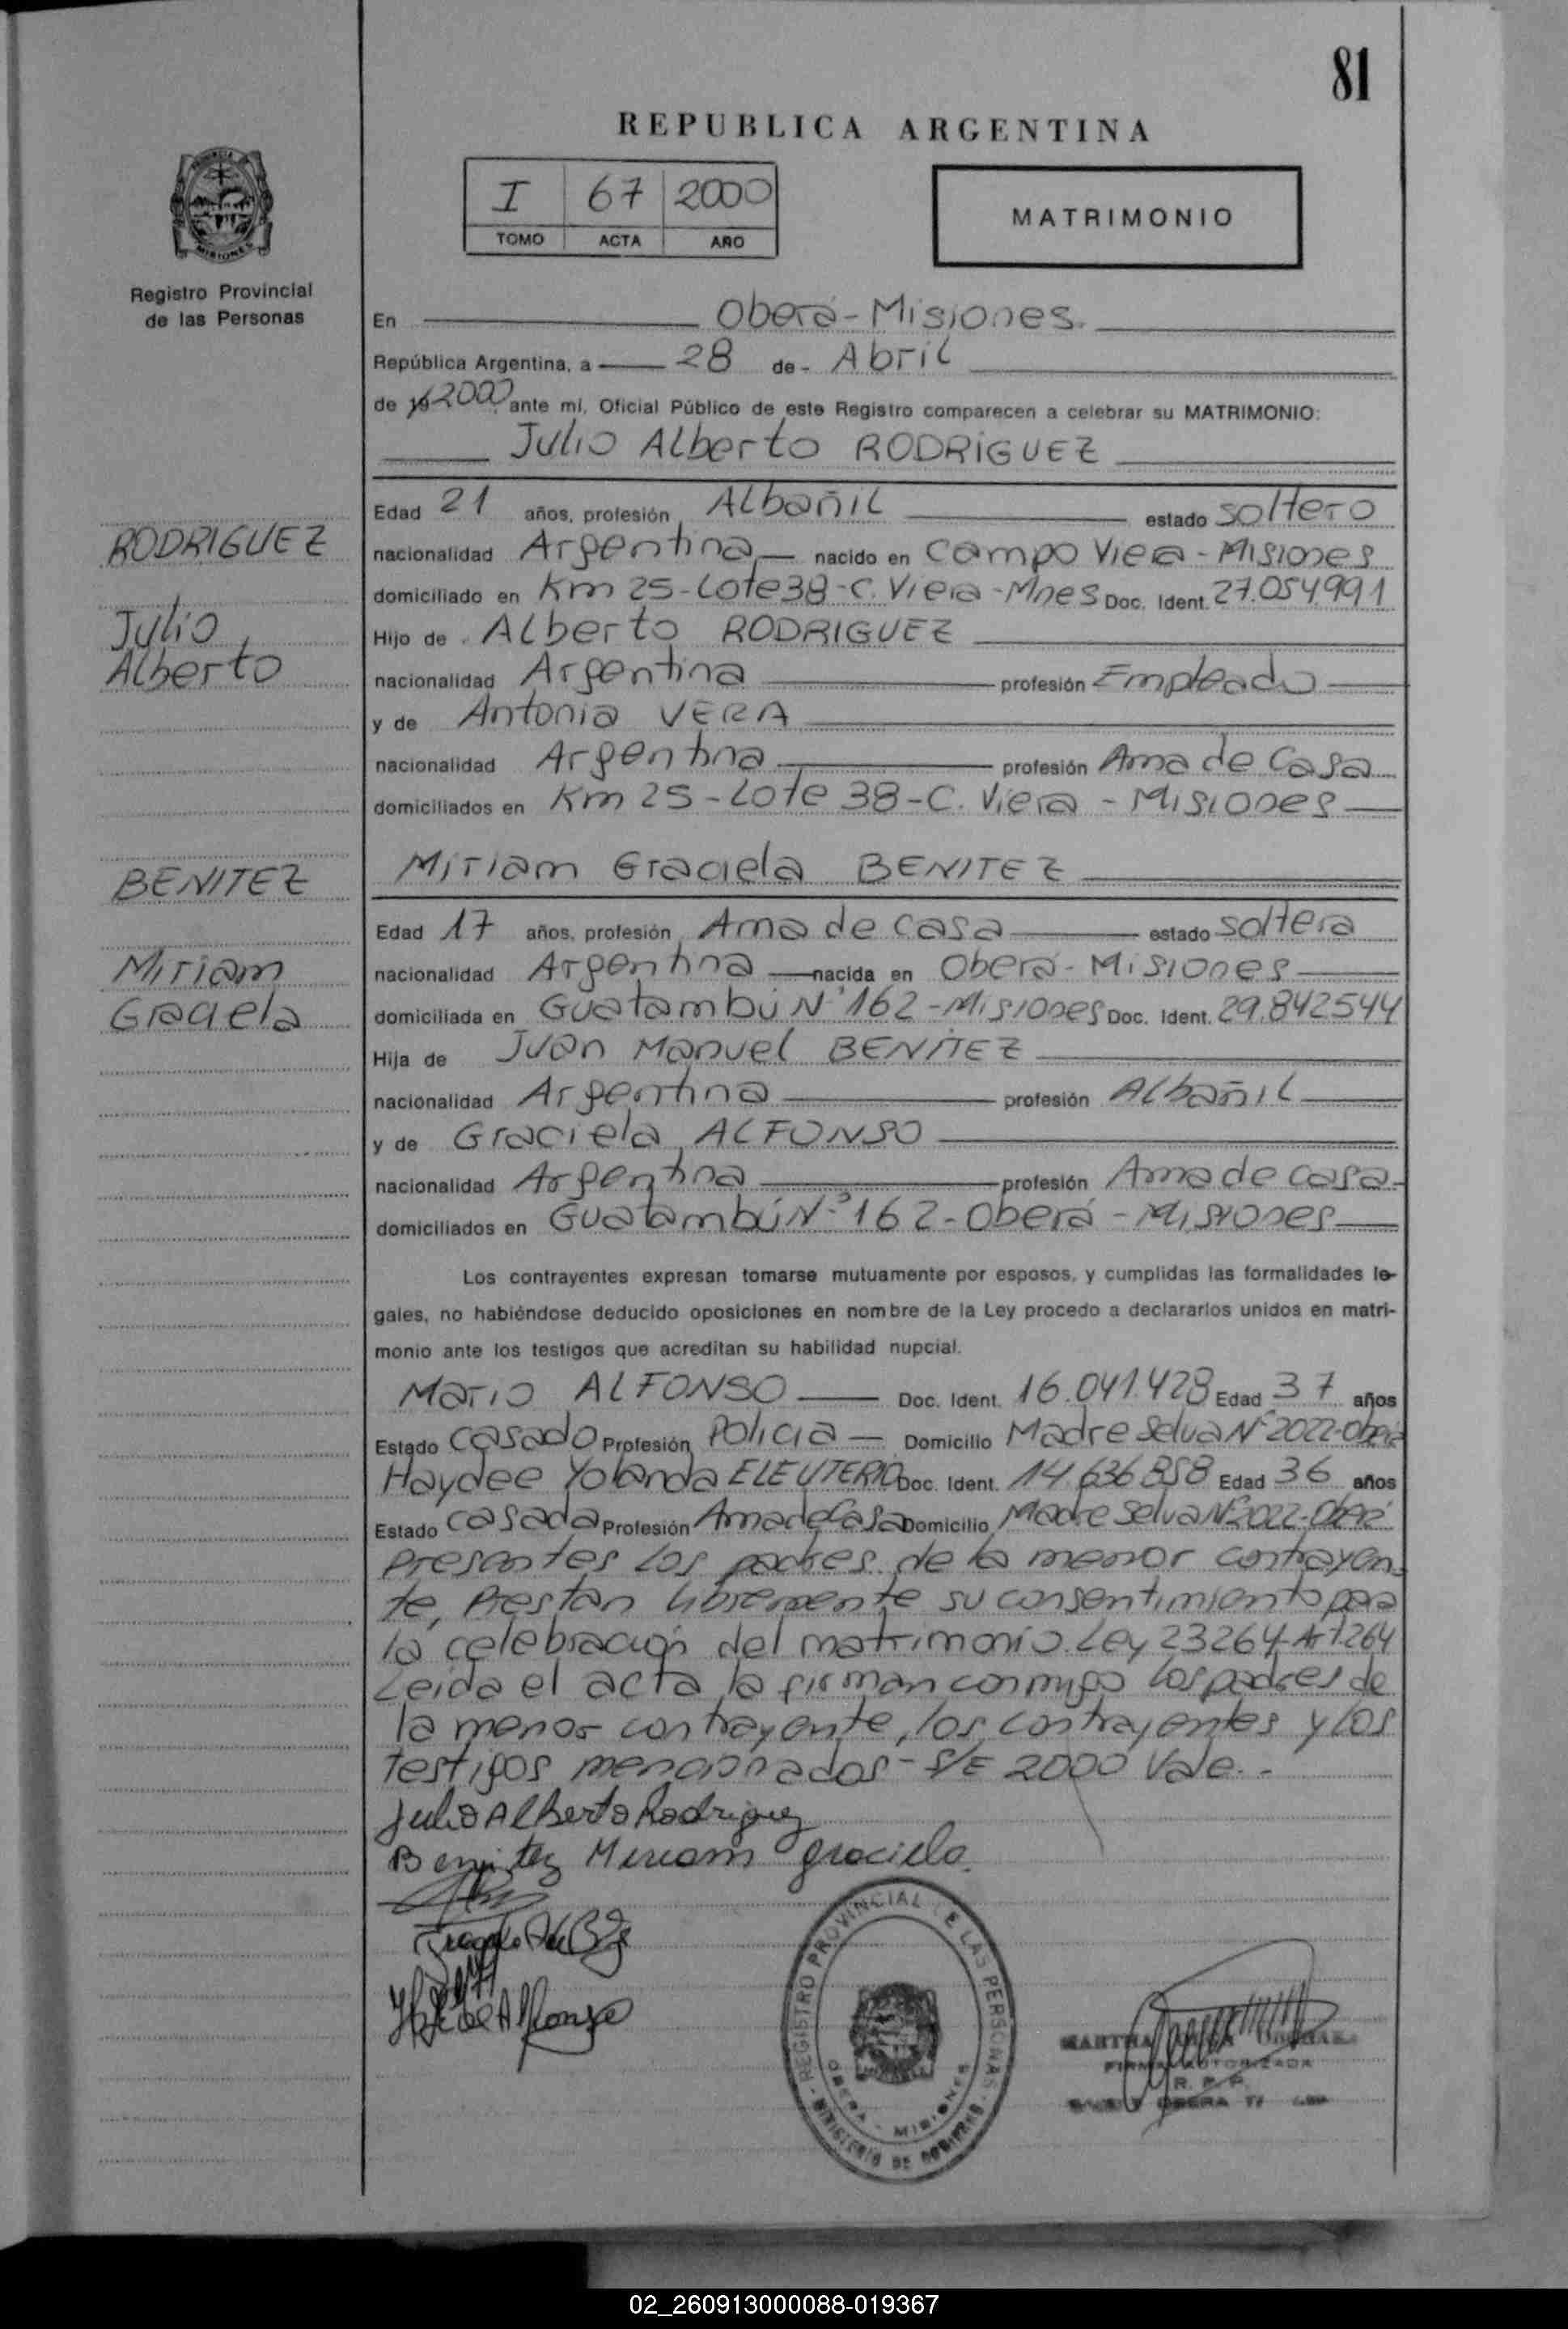 81
REPUBLICA ARGENTINA
I 67 2000
TOMO ACTA AÑO
MATRIMONIO
Registro Provincial
de las Personas
En Oberá - Misiones.
República Argentina, a 28 de - Abril
de 19 2000 ante mí, Oficial Público de este Registro comparecen a celebrar su MATRIMONIO:
Julio Alberto RODRIGUEZ
RODRIGUEZ
Julio
Alberto
Edad 21 años, profesión Albañil estado soltero
nacionalidad Argentina nacido en Campo Viera - Misiones
domiciliado en Km 25 - Lote 38 - C. Viera - Mnes Doc. Ident. 27.054.991
Hijo de Alberto RODRIGUEZ
nacionalidad Argentina profesión Empleado
y de Antonia VERA
nacionalidad Argentina profesión Ama de Casa
domiciliados en Km 25 - Lote 38 - C. Viera - Misiones
BENITEZ
Miriam
Graciela
Miriam Graciela BENITEZ
Edad 17 años, profesión Ama de casa estado soltera
nacionalidad Argentina nacida en Oberá - Misiones
domiciliada en Guatambú Nº 162 - Misiones Doc. Ident. 29.842544
Hija de Juan Manuel BENITEZ
nacionalidad Argentina profesión Albañil
y de Graciela ALFONSO
nacionalidad Argentina profesión Ama de casa
domiciliados en Guatambú Nº 162 - Oberá - Misiones
Los contrayentes expresan tomarse mutuamente por esposos, y cumplidas las formalidades le-
gales, no habiéndose deducido oposiciones en nombre de la Ley procedo a declararlos unidos en matri-
monio ante los testigos que acreditan su habilidad nupcial.
Mario ALFONSO Doc. Ident. 16.041.428 Edad 37 años
Estado Casado Profesión Policia Domicilio Madre Selva Nº 2022 - Oberá
Haydee Yolanda ELEUTERIO Doc. Ident. 14.636858 Edad 36 años
Estado Casada Profesión Ama de Casa Domicilio Madre Selva Nº 2022 - Oberá
Presentes los padres de la menor contrayen-
te, Prestan libremente su consentimiento para
la celebración del matrimonio. Ley 23264 - Art. 264
Leida el acta la firman conmigo los padres de
la menor contrayente, los contrayentes y los
testigos mencionados - S/E 2000 Vale. -
Julio Alberto Rodriguez
Benitez Miriam graciela.
de Alfonso
REGISTRO PROVINCIAL DE LAS PERSONAS
OBERA - MISIONES
MINISTERIO DE GOBIERNO
MARTHA
FIRMA AUTORIZADA
R. P. P.
OBERA
02_260913000088-019367